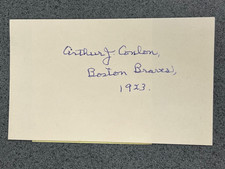 Arthur J Conlon,
Boston Braves,
1923.